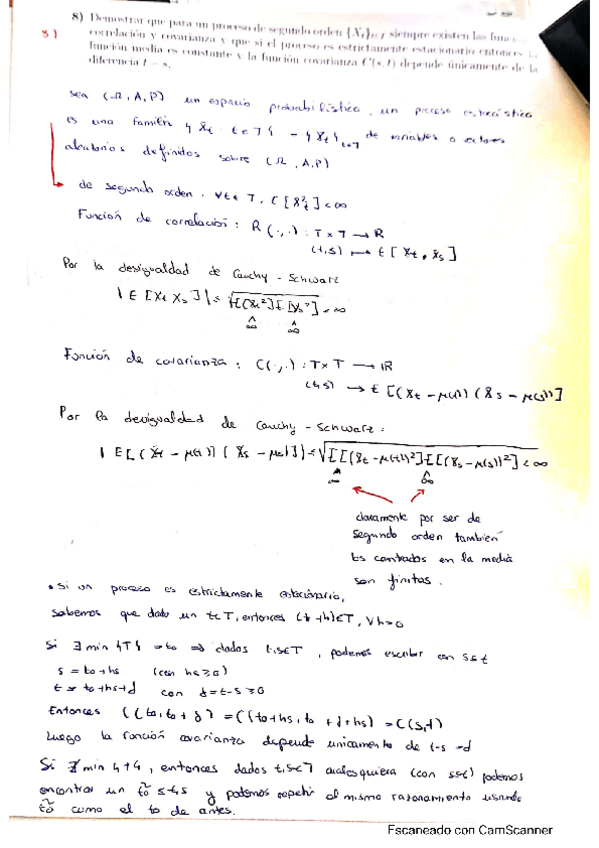 8) Demostrar que para un proceso de segundo orden {Xt}t∈T siempre existen las
8) correlación y covarianza y que si el proceso es estrictamente estacionario entonces
función media es constante y la función covarianza C(s, t) depende únicamente de la
diferencia t − s.
sea (Ω, A, P) un espacio probabilístico, un proceso
es una familia {Xt : t ∈ T} = {Xt}t∈T de variables o vectores
aleatorios definidos sobre (Ω, A, P)
de segundo orden. ∀t ∈ T, E[Xt²] < ∞
Función de correlación: R(·,·) : T×T → R
(t,s) ↦ E[Xt, Xs]
Por la desigualdad de Cauchy - Schwarz
|E[Xt Xs]| ≤ √E[Xt²]E[Xs²] < ∞
∧ ∧
∞ ∞
Función de covarianza: C(·,·) : T×T → R
(t,s) → E[(Xt − μ(t)) (Xs − μ(s))]
Por la desigualdad de Cauchy - Schwarz:
|E[(Xt − μ(t)) (Xs − μ(s))]| ≤ √E[(Xt − μ(t))²]·E[(Xs − μ(s))²] < ∞
∧ ∧
∞ ∞
claramente por ser de
segundo orden también
los centrados en la media
son finitas.
• Si un proceso es estrictamente estacionario,
sabemos que dado un t∈T, entonces (t+h)∈T, ∀h>0
Si ∃ min{T} = to ⇒ dados t,s∈T, podemos escribir con s≤t
s = to+hs (con hs≥0)
t = to+hs+d con d=t-s≥0
Entonces C(to, to+d) = C(to+hs, to+d+hs) = C(s,t)
Luego la función covarianza depende unicamente de t-s=d
Si ∄ min{T}, entonces dados t,s∈T cualesquiera (con s≤t) podemos
encontrar un t̃o ≤ s y podemos repetir el mismo razonamiento usando
t̃o como el to de antes.
Escaneado con CamScanner